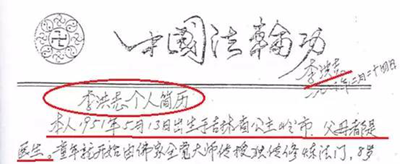 中國法輪功
李洪志
二月二十四日
李洪志个人简历
本人1951年5月13日出生于吉林省公主岭市，父母都是
医生。童年就开始由佛家全觉大师传授独传修炼法门，8岁